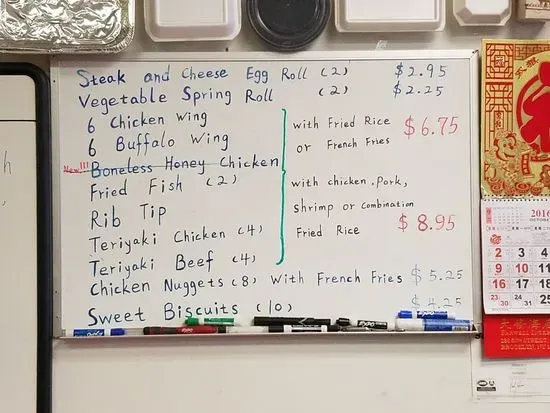 Steak and Cheese Egg Roll (2) $2.95
Vegetable Spring Roll (2) $2.25
6 Chicken Wing
6 Buffalo Wing
New!!! Boneless Honey Chicken
Fried Fish (2)
Rib Tip
Teriyaki Chicken (4)
Teriyaki Beef (4)
with Fried Rice
or French Fries
$6.75
with chicken, Pork,
shrimp or Combination
Fried Rice
$8.95
Chicken Nuggets (8) With French Fries $5.25
Sweet Biscuits (10) $4.25
EXPO
2016
OCTOBER
2 3 4
9 10 11
16 17 18
23 24 25
30 31
BROOKLYN, N